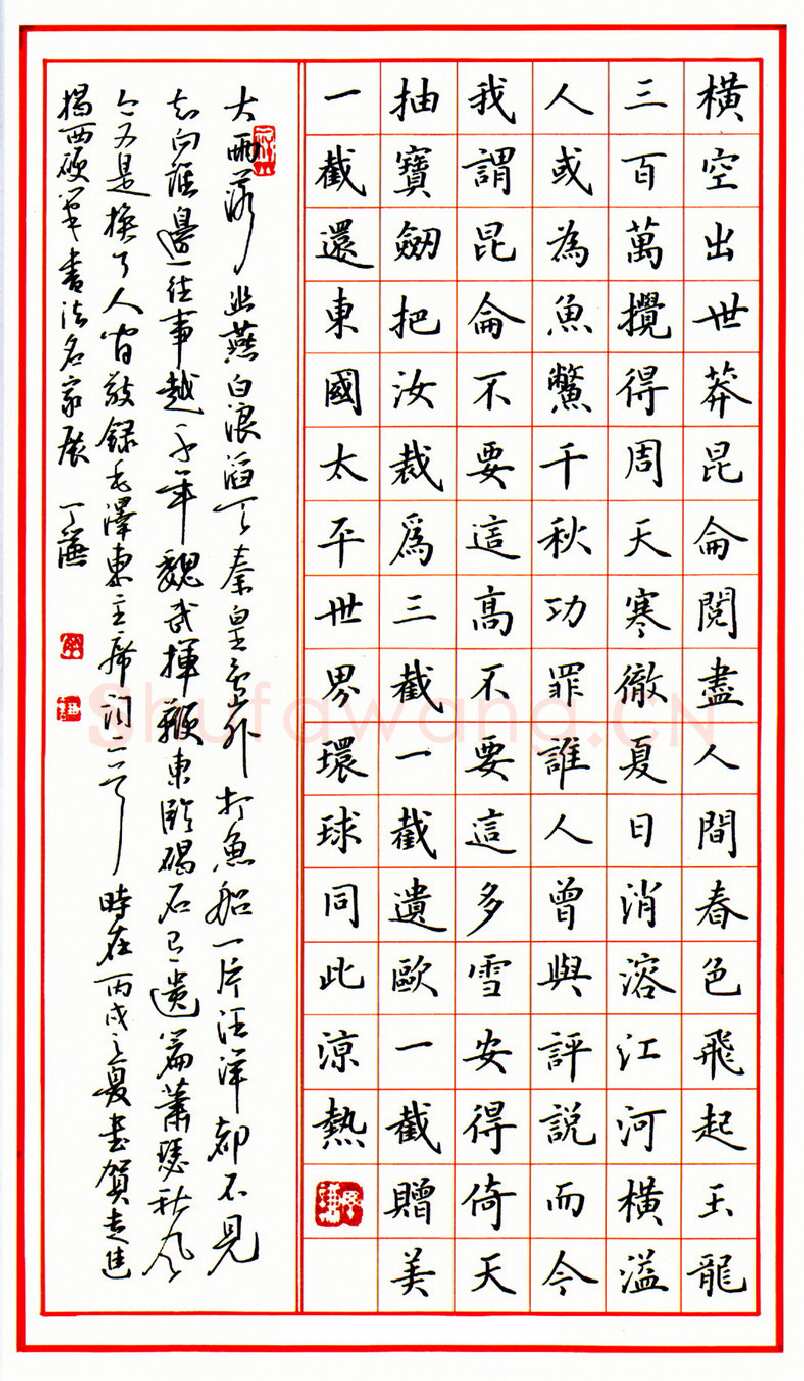 橫空出世莽昆侖閱盡人間春色飛起玉龍
三百萬攪得周天寒徹夏日消溶江河橫溢
人或為魚鱉千秋功罪誰人曾與評說而今
我謂昆侖不要這高不要這多雪安得倚天
抽寶劒把汝裁爲三截一截遺歐一截贈美
一截還東國太平世界環球同此涼熱
大雨落幽燕白浪滔天秦皇島外打魚船一片汪洋都不見
知向誰邊往事越千年魏武揮鞭東臨碣石有遺篇蕭瑟秋風
今又是換了人間敬錄毛澤東主席詞二首時在丙戌之夏書賀走進
揭西硬筆書法名家展 丁謙
Shufawang.CN